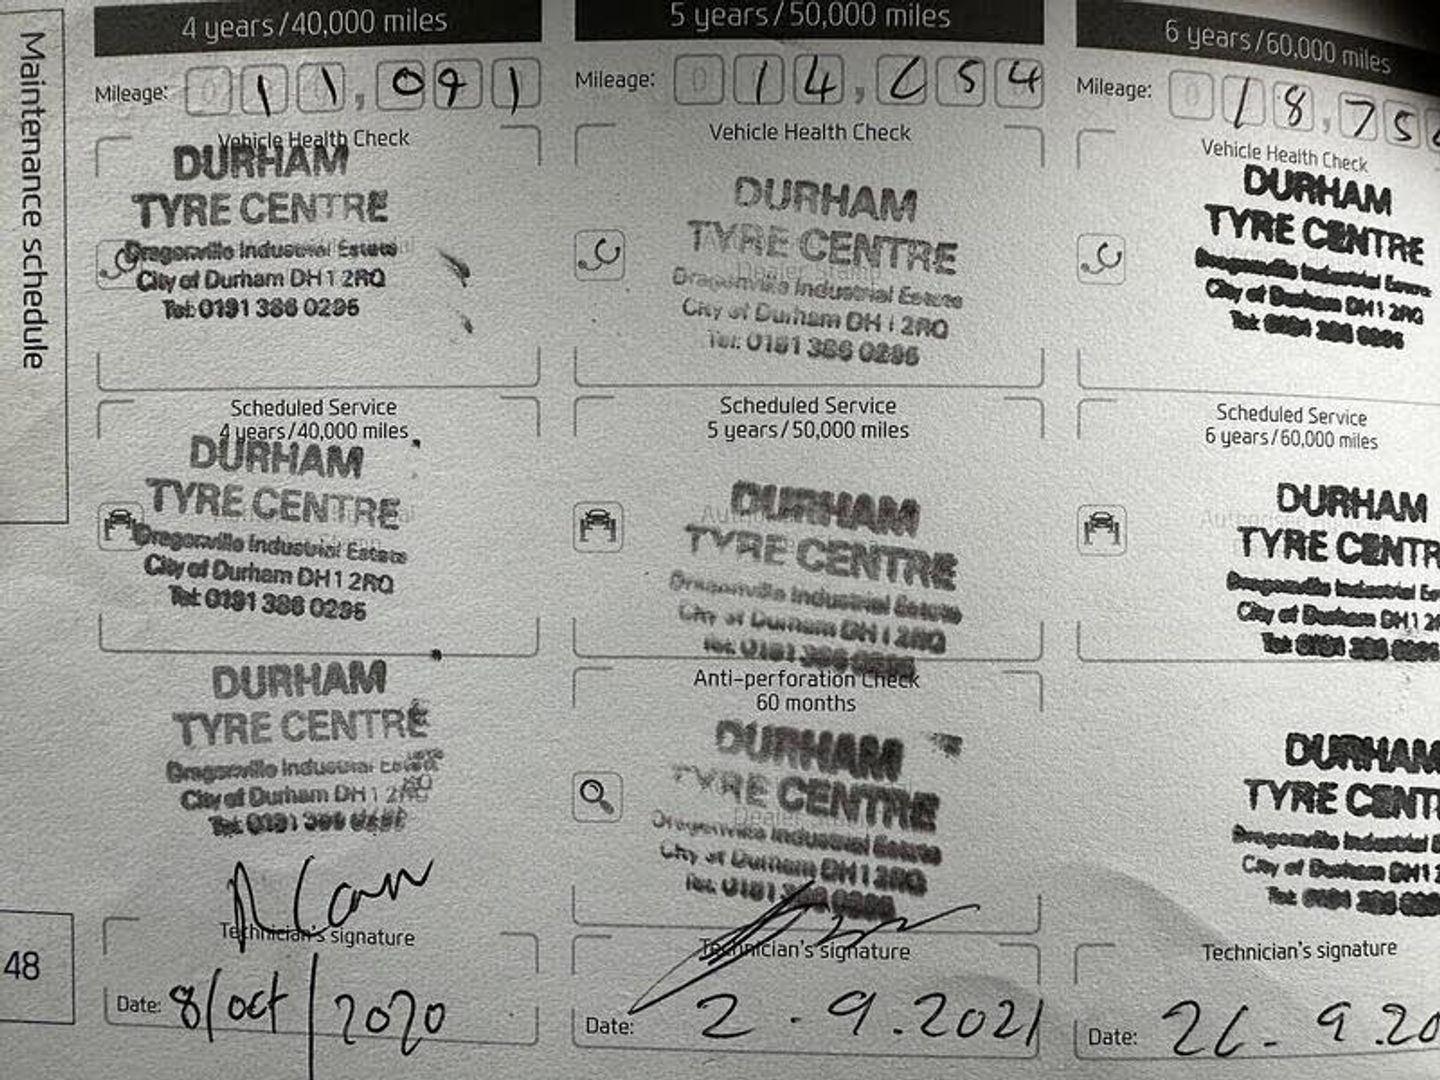 Maintenance schedule
48
4 years/40,000 miles
Mileage: 011,091
Vehicle Health Check
DURHAM
TYRE CENTRE
Dragonville Industrial Estate
City of Durham DH1 2RQ
Tel: 0191 386 0295
Scheduled Service
4 years/40,000 miles
DURHAM
TYRE CENTRE
Dragonville Industrial Estate
City of Durham DH1 2RQ
Tel: 0191 386 0295
DURHAM
TYRE CENTRE
Dragonville Industrial Estate
City of Durham DH1 2RQ
Tel: 0191 386 0295
Technician's signature
Date: 8/Oct/2020
5 years/50,000 miles
Mileage: 014,654
Vehicle Health Check
DURHAM
TYRE CENTRE
Dealer Stamp
Dragonville Industrial Estate
City of Durham DH1 2RQ
Tel: 0191 386 0295
Scheduled Service
5 years/50,000 miles
DURHAM
TYRE CENTRE
Dragonville Industrial Estate
City of Durham DH1 2RQ
Tel: 0191 386 0295
Anti-perforation Check
60 months
DURHAM
TYRE CENTRE
Dragonville Industrial Estate
City of Durham DH1 2RQ
Tel: 0191 386 0295
Technician's signature
Date: 2.9.2021
6 years/60,000 miles
Mileage: 018,75
Vehicle Health Check
DURHAM
TYRE CENTRE
Dragonville Industrial Estate
City of Durham DH1 2RQ
Tel: 0191 386 0295
Scheduled Service
6 years/60,000 miles
DURHAM
TYRE CENTR
Dragonville Industrial Es
City of Durham DH1 2
Tel: 0191 386 0295
DURHAM
TYRE CENT
Dragonville Industrial
City of Durham DH1
Tel: 0191 386 029
Technician's signature
Date: 26.9.20